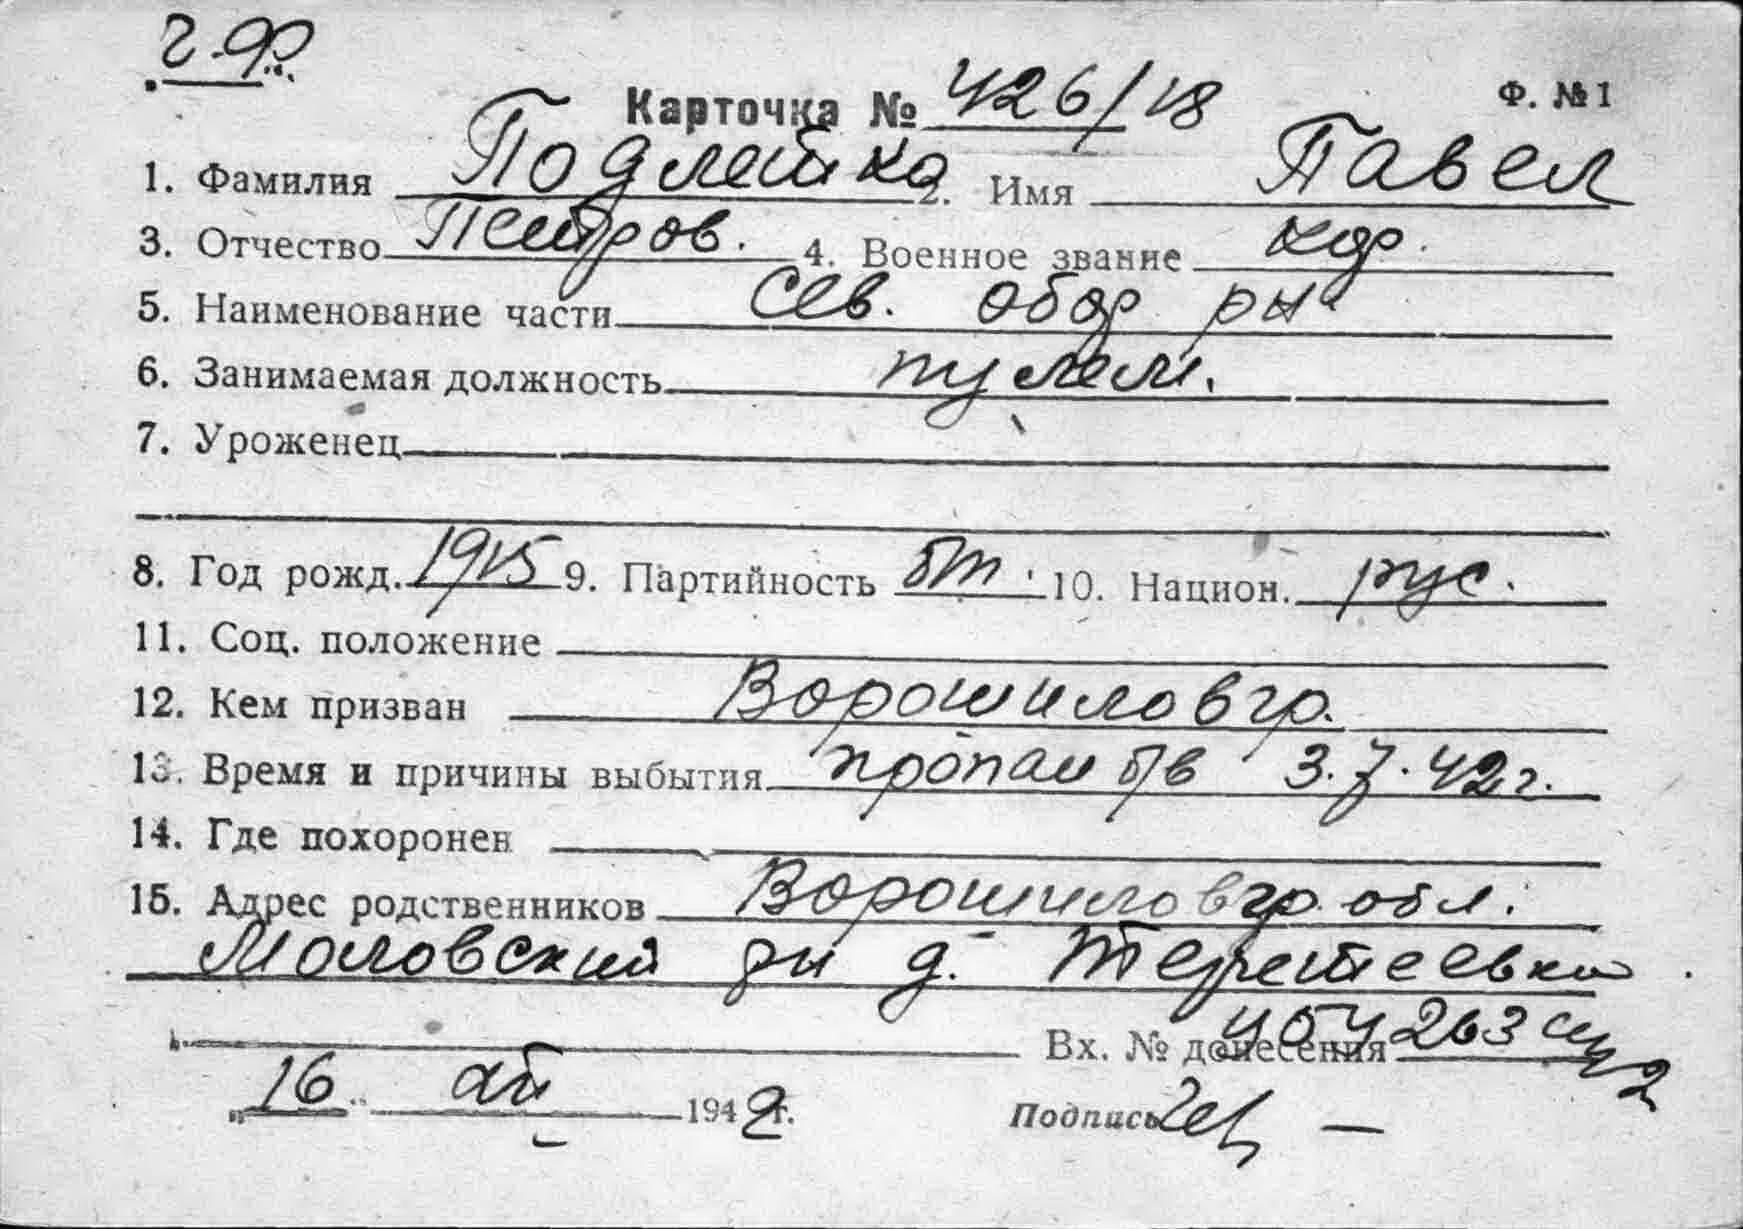 Ч.Ф.
Карточка № 426/18 Ф. № 1
1. Фамилия Подлетка 2. Имя Павел
3. Отчество Петров. 4. Военное звание кдр.
5. Наименование части Сев. обор рн
6. Занимаемая должность пулем.
7. Уроженец
8. Год рожд. 1915 9. Партийность бп. 10. Национ. рус.
11. Соц. положение
12. Кем призван Ворошиловгр.
13. Время и причины выбытия пропал б/в 3.7.42 г.
14. Где похоронен
15. Адрес родственников Ворошиловгр. обл.
Моловский рн д.
Вх. № донесения 263
„16“ 1942 г. Подпись